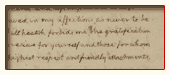 ured in my affections as never to be
ill health forbids me the gratification
reason for yourself and those for whom
highest respect and friendly attachments.